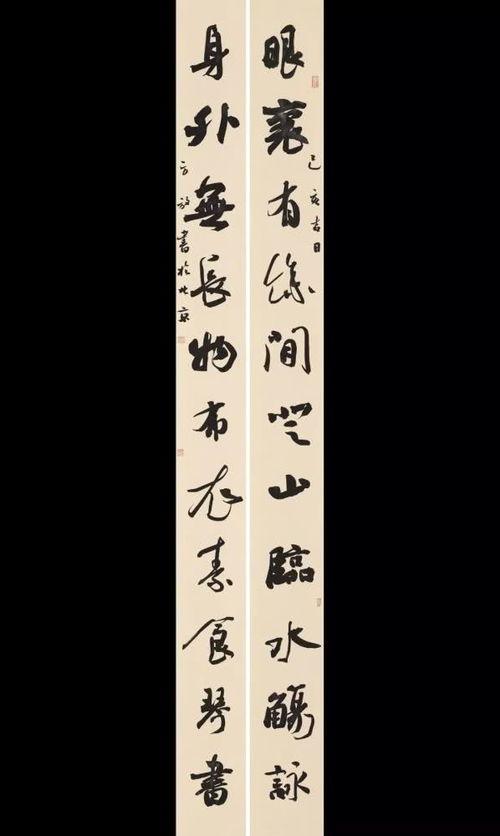 眼裏有餘間登山臨水觴詠
己亥吉日
身外無長物布衣素食琴書
方放書於北京